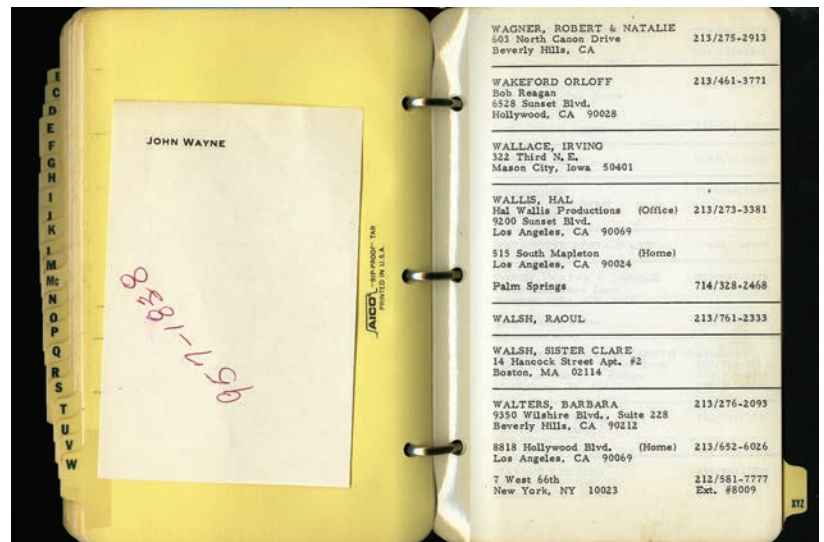 C
D
E
F
G
H
I
J
K
M
Mc
N
O
P
Q
R
S
T
U
V
W
JOHN WAYNE
AICO "RIP-PROOF" TAB
PRINTED IN U.S.A.
WAGNER, ROBERT & NATALIE
603 North Canon Drive 213/275-2913
Beverly Hills, CA
WAKEFORD ORLOFF 213/461-3771
Bob Reagan
6528 Sunset Blvd.
Hollywood, CA 90028
WALLACE, IRVING
322 Third N.E.
Mason City, Iowa 50401
WALLIS, HAL
Hal Wallis Productions (Office) 213/273-3381
9200 Sunset Blvd.
Los Angeles, CA 90069
515 South Mapleton (Home)
Los Angeles, CA 90024
Palm Springs 714/328-2468
WALSH, RAOUL 213/761-2333
WALSH, SISTER CLARE
14 Hancock Street Apt. #2
Boston, MA 02114
WALTERS, BARBARA 213/276-2093
9350 Wilshire Blvd., Suite 228
Beverly Hills, CA 90212
8818 Hollywood Blvd. (Home) 213/652-6026
Los Angeles, CA 90069
7 West 66th 212/581-7777
New York, NY 10023 Ext. #8009
XYZ